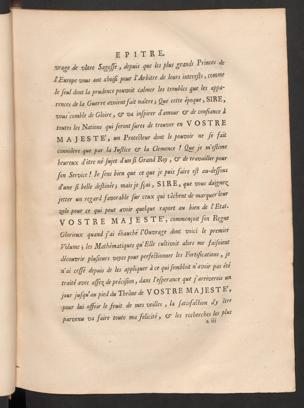 EPITRE.
vrage de vôtre Sagesse, depuis que les plus grands Princes de
l'Europe vous ont choisi pour l'Arbitre de leurs interests, comme
le seul dont la prudence pouvoit calmer les troubles que les appa-
rences de la Guerre avoient fait naître; Que cette époque, SIRE,
vous comble de Gloire, & va inspirer d'amour & de confiance à
toutes les Nations qui seront sures de trouver en VOSTRE
MAJESTE', un Protecteur dont le pouvoir ne se fait
connoître que par la Justice & la Clemence! Que je m'estime
heureux d'être né sujet d'un si Grand Roy, & de travailler pour
son Service! Je sens bien que ce que je puis faire est au-dessous
d'une si belle destinée; mais je sçai, SIRE, que vous daignez
jetter un regard favorable sur ceux qui tâchent de marquer leur
zele pour ce qui peut avoir quelque raport au bien de l'Etat.
VOSTRE MAJESTE', commençoit son Regne
Glorieux quand j'ai ébauché l'Ouvrage dont voici le premier
Volume; les Mathématiques qu'Elle cultivoit alors me faisoient
découvrir plusieurs vuyes pour perfectionner les Fortifications, je
n'ai cessé depuis de les appliquer à ce qui sembloit n'avoir pas été
traité avec assez de précision, dans l'esperance que j'arriverois un
jour jusqu'au pied du Thrône de VOSTRE MAJESTE',
pour lui offrir le fruit de mes veilles, la satisfaction d'y être
parvenu va faire toute ma felicité, & les recherches les plus
a iij